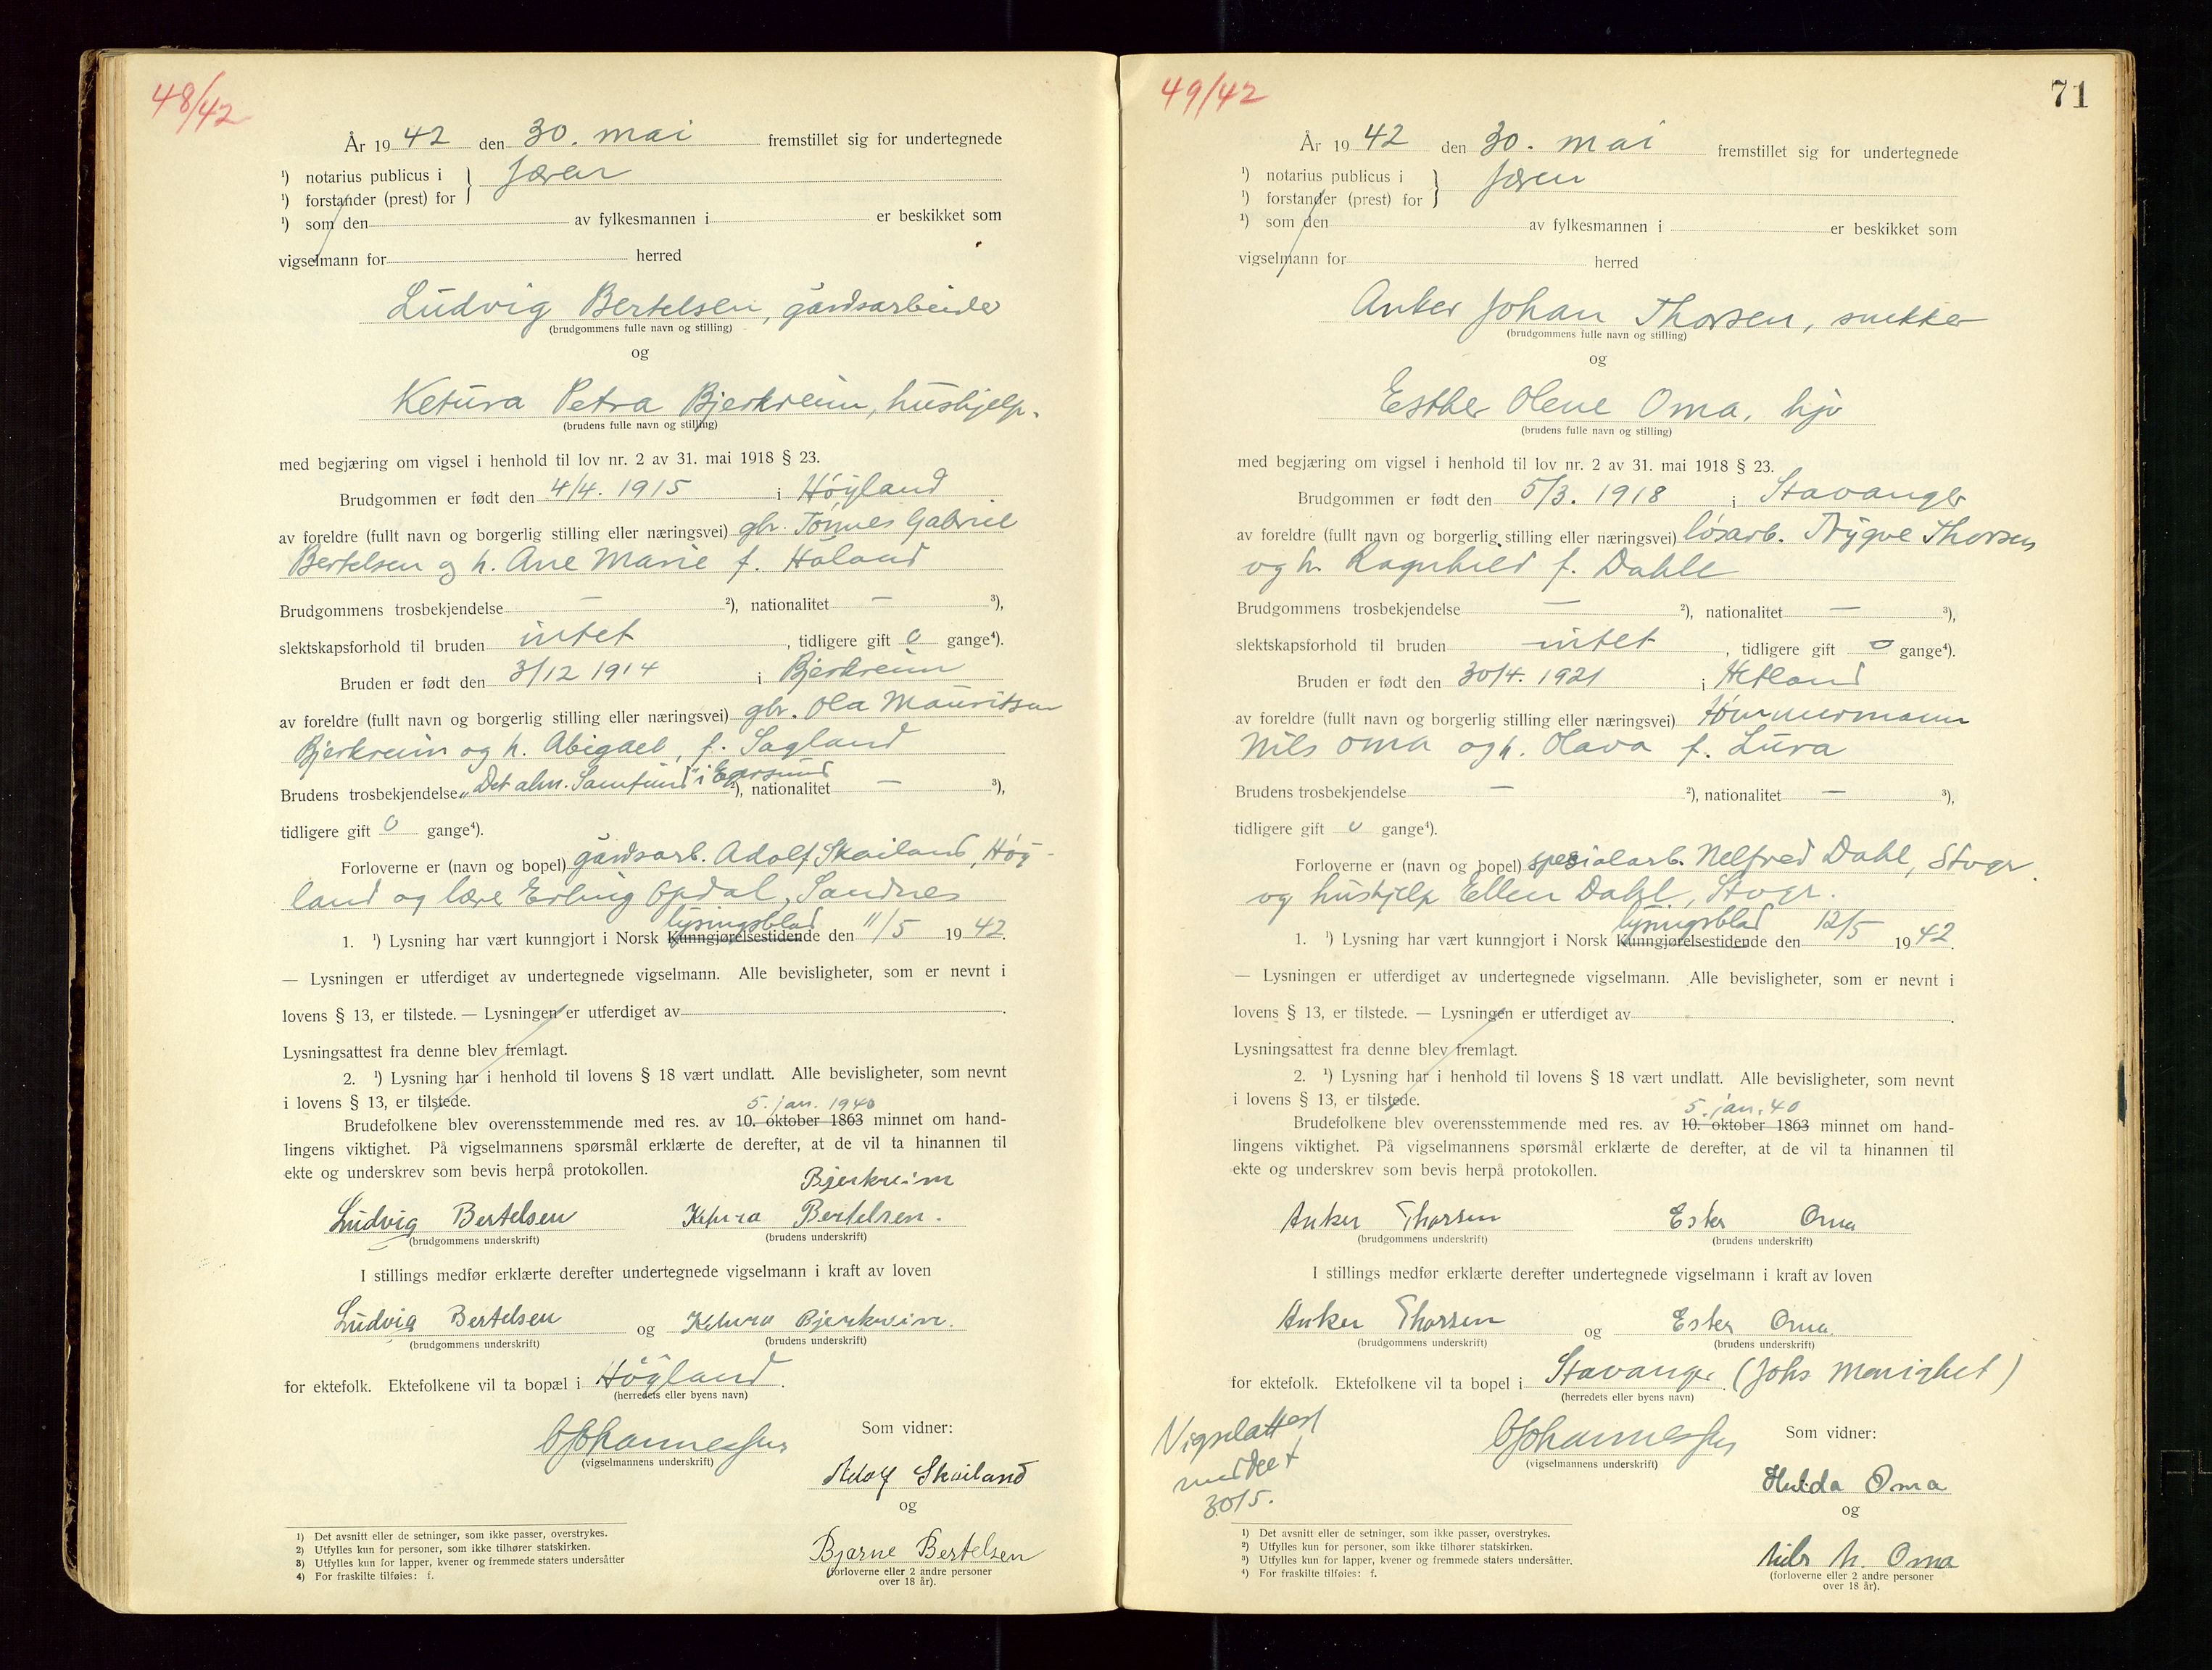 48/42
År 1942 den 30. mai fremstillet sig for undertegnede
¹) notarius publicus i } Jæren
¹) forstander (prest) for
¹) som den av fylkesmannen i er beskikket som
vigselmann for herred
Ludvig Bertelsen, gårdsarbeider
(brudgommens fulle navn og stilling)
og
Ketura Petra Bjerkreim, hushjelp.
(brudens fulle navn og stilling)
med begjæring om vigsel i henhold til lov nr. 2 av 31. mai 1918 § 23.
Brudgommen er født den 4/4. 1915 i Høyland
av foreldre (fullt navn og borgerlig stilling eller næringsvei) gbr. Tønnes Gabriel
Bertelsen og h. Ane Marie f. Håland
Brudgommens trosbekjendelse — ²), nationalitet — ³),
slektskapsforhold til bruden intet, tidligere gift 0 gange⁴).
Bruden er født den 3/12 1914 i Bjerkreim
av foreldre (fullt navn og borgerlig stilling eller næringsvei) gbr. Ola Mauritsen
Bjerkreim og h. Abigael, f. Sagland
Brudens trosbekjendelse „Det alm. Samfund" i Egersund ²), nationalitet — ³),
tidligere gift 0 gange⁴).
Forloverne er (navn og bopel) gårdsarb. Adolf Skailand, Høy-
land og lærer Erling Opdal, Sandnes
lysingsblad
1. ¹) Lysning har vært kunngjort i Norsk Kunngjørelsestidende den 11/5 1942.
— Lysningen er utferdiget av undertegnede vigselmann. Alle bevisligheter, som er nevnt i
lovens § 13, er tilstede. — Lysningen er utferdiget av
Lysningsattest fra denne blev fremlagt.
2. ¹) Lysning har i henhold til lovens § 18 vært undlatt. Alle bevisligheter, som nevnt
i lovens § 13, er tilstede.
5. jan. 1940
Brudefolkene blev overensstemmende med res. av 10. oktober 1863 minnet om hand-
lingens viktighet. På vigselmannens spørsmål erklærte de derefter, at de vil ta hinannen til
ekte og underskrev som bevis herpå protokollen.
Bjerkreim
Ludvig Bertelsen Ketura Bertelsen.
(brudgommens underskrift) (brudens underskrift)
I stillings medfør erklærte derefter undertegnede vigselmann i kraft av loven
Ludvig Bertelsen og Ketura Bjerkreim.
(brudgommens underskrift) (brudens underskrift)
for ektefolk. Ektefolkene vil ta bopæl i Høyland.
(herredets eller byens navn)
Som vidner:
(vigselmannens underskrift)
Adolf Skailand
og
Bjarne Bertelsen
(forloverne eller 2 andre personer
over 18 år).
1) Det avsnitt eller de setninger, som ikke passer, overstrykes.
2) Utfylles kun for personer, som ikke tilhører statskirken.
3) Utfylles kun for lapper, kvener og fremmede staters undersåtter
4) For fraskilte tilføies: f.
49/42
71
År 1942 den 30. mai fremstillet sig for undertegnede
¹) notarius publicus i } Jæren
¹) forstander (prest) for
¹) som den av fylkesmannen i er beskikket som
vigselmann for herred
Anker Johan Thorsen, snekker
(brudgommens fulle navn og stilling)
og
Esther Olene Oma, hjv
(brudens fulle navn og stilling)
med begjæring om vigsel i henhold til lov nr. 2 av 31. mai 1918 § 23.
Brudgommen er født den 5/3. 1918 i Stavanger
av foreldre (fullt navn og borgerlig stilling eller næringsvei) løsarb. Trygve Thorsen
og h. Ragnhild f. Dahle
Brudgommens trosbekjendelse — ²), nationalitet — ³),
slektskapsforhold til bruden intet, tidligere gift 0 gange⁴).
Bruden er født den 30/4. 1921 i Hetland
av foreldre (fullt navn og borgerlig stilling eller næringsvei) tømmermann
Nils Oma og h. Olava f. Lura
Brudens trosbekjendelse — ²), nationalitet — ³),
tidligere gift 0 gange⁴).
Forloverne er (navn og bopel) spesialarb. Nelfred Dahl, Stvgr.
og hushjelp Ellen Dahl, Stvgr.
lysingsblad
1. ¹) Lysning har vært kunngjort i Norsk Kunngjørelsestidende den 12/5 1942.
— Lysningen er utferdiget av undertegnede vigselmann. Alle bevisligheter, som er nevnt i
lovens § 13, er tilstede. — Lysningen er utferdiget av
Lysningsattest fra denne blev fremlagt.
2. ¹) Lysning har i henhold til lovens § 18 vært undlatt. Alle bevisligheter, som nevnt
i lovens § 13, er tilstede.
5. jan. 40
Brudefolkene blev overensstemmende med res. av 10. oktober 1863 minnet om hand-
lingens viktighet. På vigselmannens spørsmål erklærte de derefter, at de vil ta hinannen til
ekte og underskrev som bevis herpå protokollen.
Anker Thorsen Ester Oma
(brudgommens underskrift) (brudens underskrift)
I stillings medfør erklærte derefter undertegnede vigselmann i kraft av loven
Anker Thorsen og Ester Oma.
(brudgommens underskrift) (brudens underskrift)
for ektefolk. Ektefolkene vil ta bopel i Stavanger. (Johs
(herredets eller byens navn)
Vigselattest
meddelt
30/5.
Som vidner:
(vigselmannens underskrift)
Hulda Oma
og
Nils N. Oma
(forloverne eller 2 andre personer
over 18 år).
¹) Det avsnitt eller de setninger, som ikke passer, overstrykes.
²) Utfylles kun for personer, som ikke tilhører statskirken.
³) Utfylles kun for lapper, kvener og fremmede staters undersåtter.
⁴) For fraskilte tilføies: f.